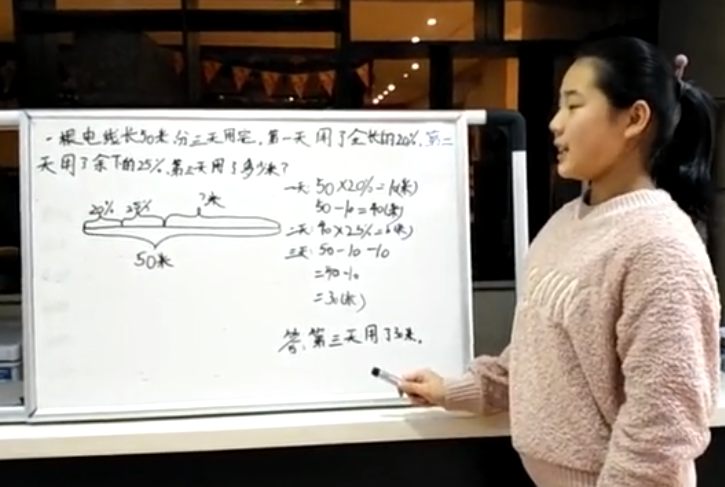 一根电线长50米,分三天用完,第一天用了全长的20%,第二
天用了余下的25%,第三天用了多少米?
20% 25% ?米
50米
一天: 50×20%=10(米)
50-10=40(米)
二天: 40×25%=10(米)
三天: 50-10-10
=40-10
=30(米)
答:第三天用了30米。